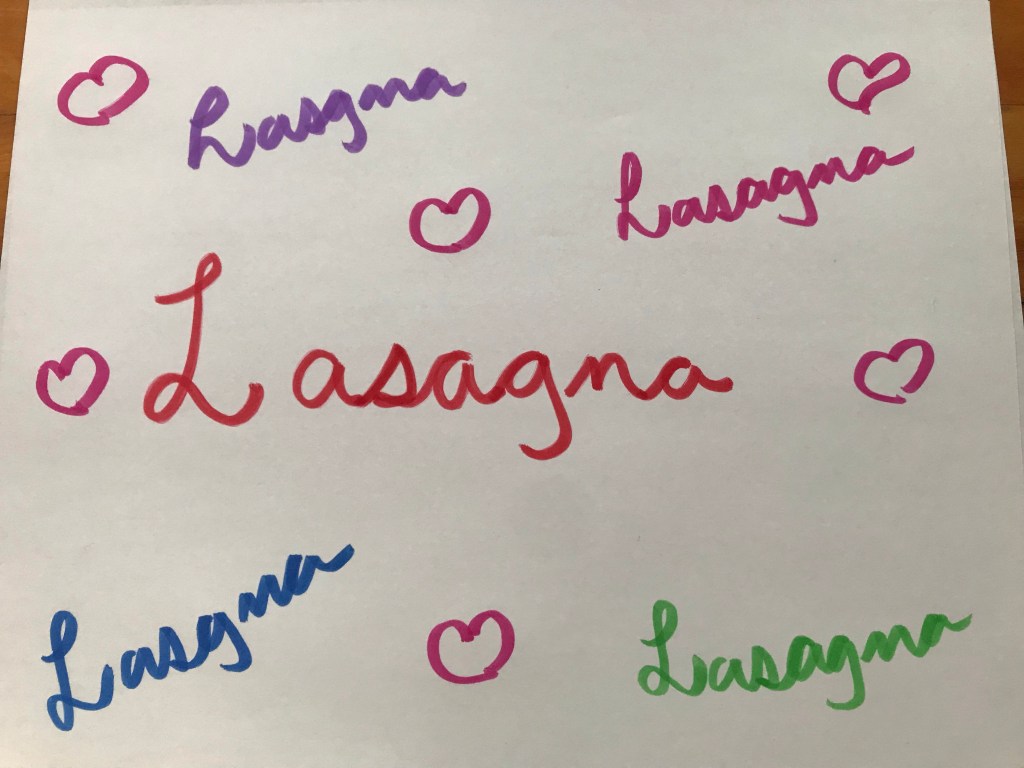 Lasgna
Lasagna
Lasagna
Lasgna
Lasagna